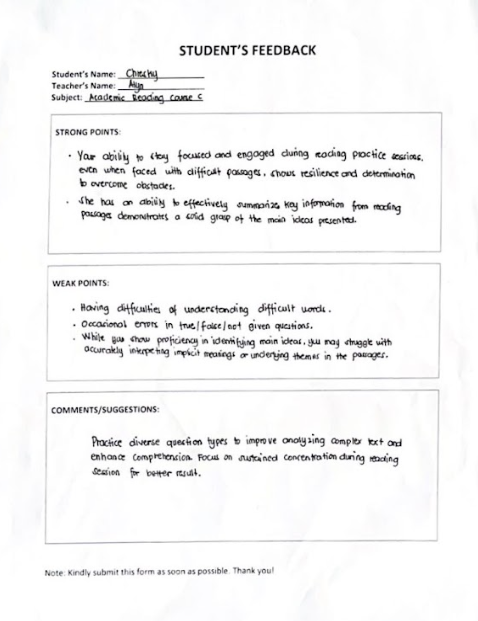 STUDENT'S FEEDBACK
Student's Name: Chrisky
Teacher's Name: Aiya
Subject: Academic Reading Course C
STRONG POINTS:
• Your ability to stay focused and engaged during reading practice sessions,
even when faced with difficult passages, shows resilience and determination
to overcome obstacles.
• She has an ability to effectively summarize key information from reading
passages demonstrates a solid grasp of the main ideas presented.
WEAK POINTS:
• Having difficulties of understanding difficult words.
• Occasional errors in true/false/not given questions.
• While you show proficiency in identifying main ideas, you may struggle with
accurately interpreting implicit meanings or underlying themes in the passages.
COMMENTS/SUGGESTIONS:
Practice diverse question types to improve analyzing complex text and
enhance comprehension. Focus on sustained concentration during reading
session for better result.
Note: Kindly submit this form as soon as possible. Thank you!